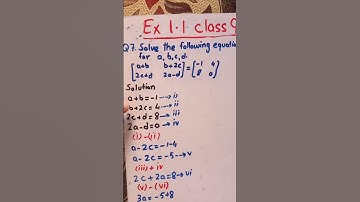 Ex 1.1 class 9
Q7. Solve the following equation
for a,b,c,d.
[a+b b+2c] = [-1 4]
[2c+d 2a-d] [8 0]
Solution
a+b=-1 → i
b+2c=4 → ii
2c+d=8 → iii
2a-d=0 → iv
(i) - (ii)
a-2c=-1-4
a-2c=-5 → v
(iii) + iv
2c+2a=8 → vi
(v) - (vi)
3a=-5+8